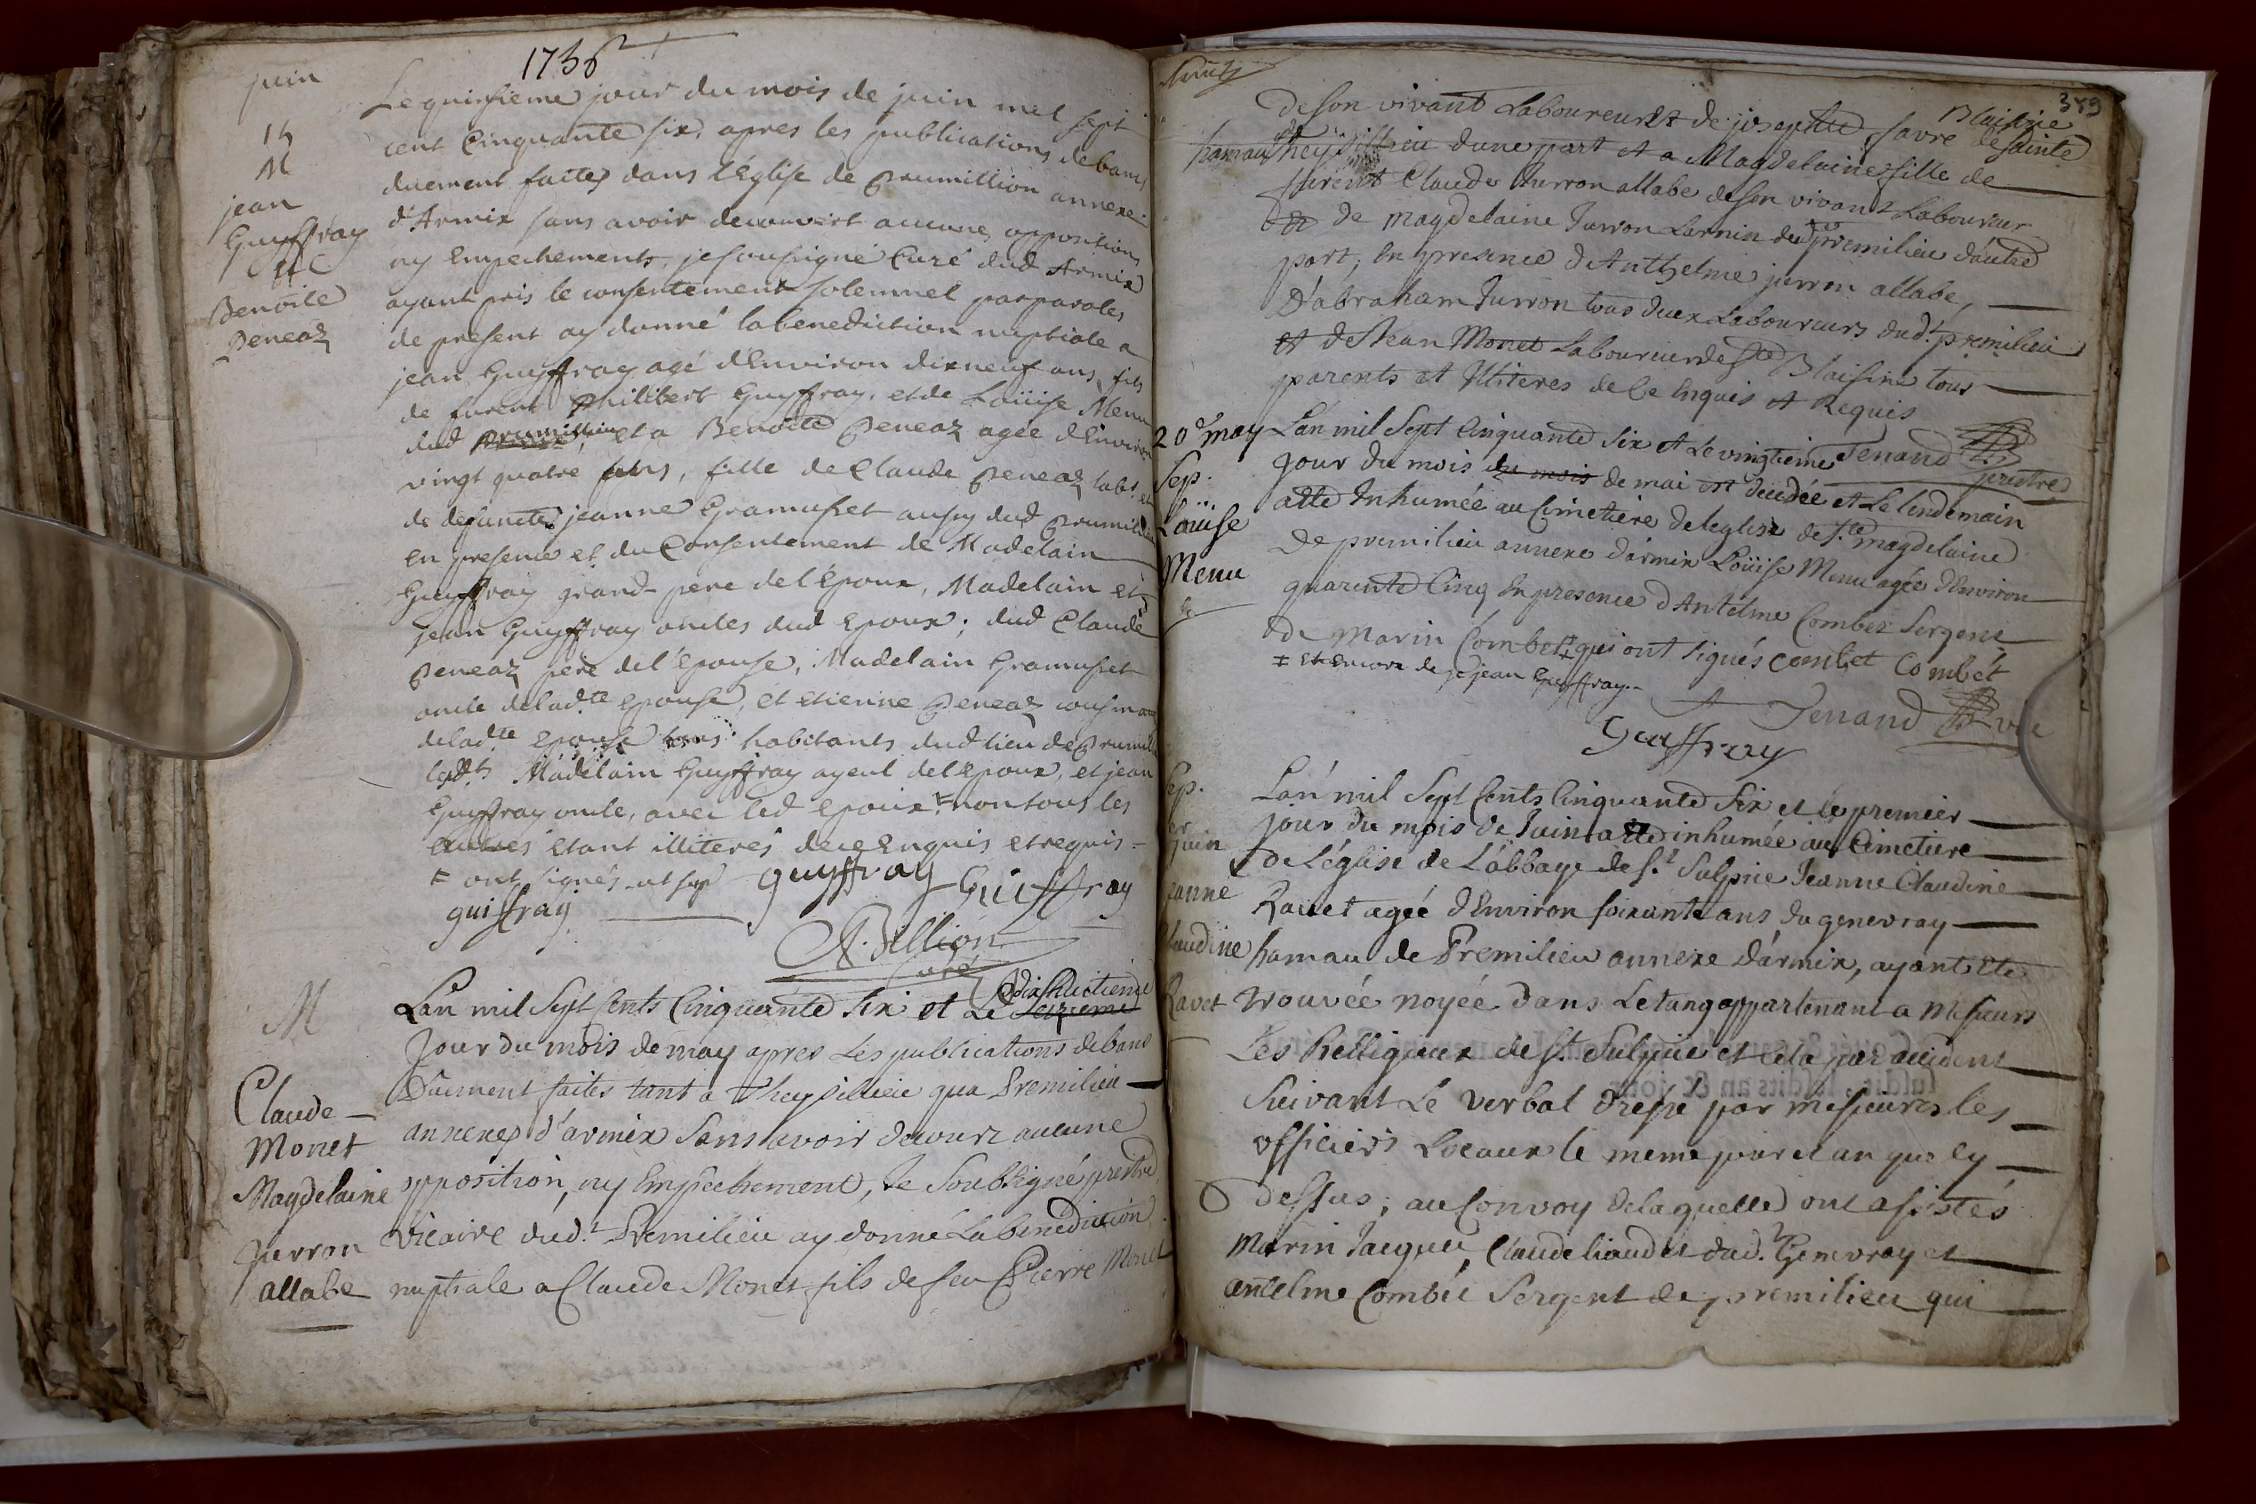 1756
juin
15
M
jean
Guyffray
et
Benoite
Peneaz
Le quinsieme jour du mois de juin mil sept
cent Cinquante six, apres les publications de bans
duement faites dans l'Eglise de Prumillion annexe
d'Armix sans avoir decouvert aucunes oppositions
ny Empechements, je sousigné Curé dud Armix
ayant pris le consentement solemnel par paroles
de present ay donné la benediction nuptiale a
jean Guyffray agé d'Environ dixneuf ans, fils
de furent Philibert Guyffray, et de Loüise Menu
dud prumillieu, et a Benoite Peneaz agée d'Environ
vingt quatre ans, fille de Claude Peneaz labr et
de defuncte jeanne Gramusset aussy dud Prumillieu
en presence et du Consentement de Madelain
Guyffray grand-pere de l'Epoux, Madelain et
jean Guyffray oncles dud Epoux; dud Claude
Peneaz pere de l'epouse, Madelain Gramusset
oncle de lad.te epouse, et etienne Peneaz cousin
de lad.te epouse tous habitants dud lieu de Prumil
Madelain Guyffray ayeul de l'epoux, et jean
Guyffray oncle, avec led epoux ⧧ non tous les
autres etant illiterés de ce Enquis et requis =
⧧ ont signés guyffray Guiffray
guiffray
A. Billion
curé
M
Claude
Monet
Magdelaine
Jurron
allabe
dixhuictieme
L'an mil Sept Cents Cinquante Six et Le seizieme
Jour du mois de may apres Les publications de bans
Duement faites tant a Theysilieu qua Premilieu
annexes d'armix Sans avoir decouvr aucune
opposition, ny Empechement, Je Soubsigné prestre
Vicaire dud.t Premilieu ay donné La benediction
nuptiale a Claude Monet fils de feu Pierre Monet
389
de son vivant Laboureur et de josephte favre de sainte
Blaisine
hamau de Theysillieu d'une part et a Magdelaine fille de
furent Claude Jurron allabe de son vivant Laboureur
et de Magdelaine Jurron Lernin de premilieu d'autre
part; En presence d'Anthelme jurron allabe,
D'abraham Jurron tous deux Laboureurs dud.t premilieu
et de Jean Monet Laboureur de Ste Blaisine tous
parents et Illiteres de Ce Enquis et Requis
Tenand
prestre
20e may
Sep.
Loüise
Menu
L'an mil Sept Cinquante Six et Le vingtieme
Jour du mois du mois de mai est decedée et Le lendemain
a été Inhumée au Cimetiere de leglise de Ste magdelaine
De premilieu annexe d'armix Loüise Menu agée d'Environ
quarente Cinq En presence d'Antelme Combet Sergent
de Marin Combet ⧧ qui ont signés Combet Combét
⧧ et encore de jean Guyffray
Tenand vic
Guffray
Sep.
er
juin
Jeanne
Claudine
Ravet
L'an mil Sept Cents Cinquante Six et le premier
jour du mois de Juin a été inhumée au Cimetiere
de L'église de L'abbaye de S.t Sulpice Jeanne Claudine
Ravet ageé d'Environ soixante ans du genevray
hamau de Premilieu annexe D'armix, ayant Ete
trouvée noyée dans Letang appartenant a Messieurs
Les Relligieux de St Sulpice et cela par accident
Suivant Le Verbal Dressé par messieurs les
officiers Locaux le meme jour et an que cy
dessus; au Convoy de laquelle ont assistés
Marin Jacquer, Claude liaudet dud.t Genevray et
antelme Combét Sergent de premilieu qui